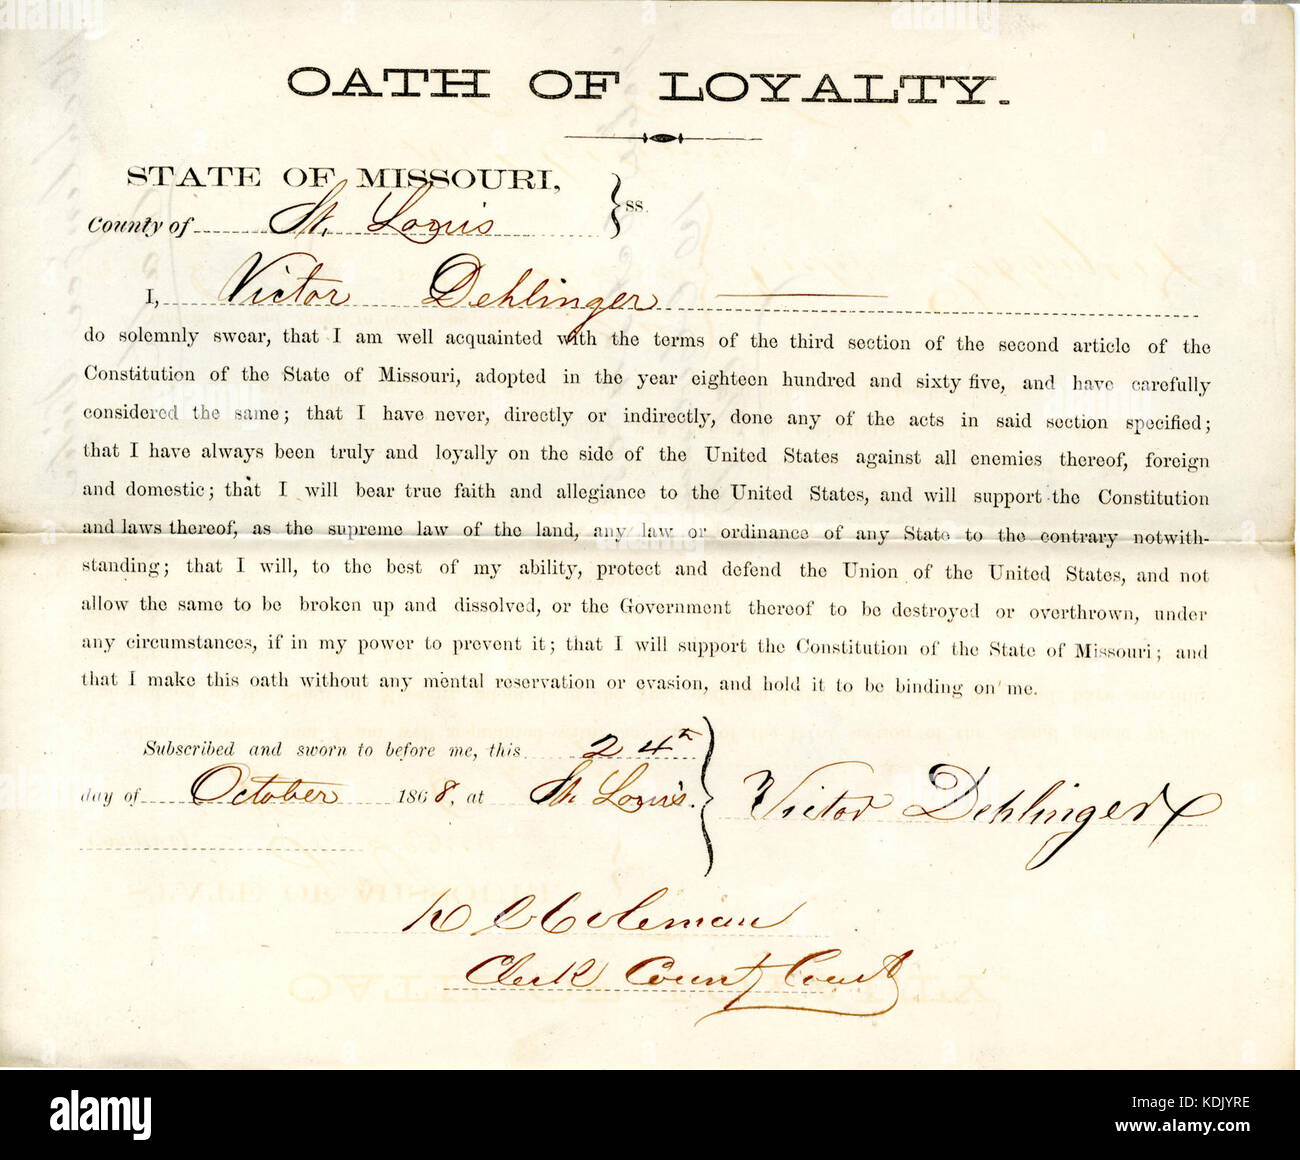 OATH OF LOYALTY.
STATE OF MISSOURI,
County of St. Louis } ss.
I, Victor Dehlinger
do solemnly swear, that I am well acquainted with the terms of the third section of the second article of the
Constitution of the State of Missouri, adopted in the year eighteen hundred and sixty five, and have carefully
considered the same; that I have never, directly or indirectly, done any of the acts in said section specified;
that I have always been truly and loyally on the side of the United States against all enemies thereof, foreign
and domestic; that I will bear true faith and allegiance to the United States, and will support the Constitution
and laws thereof, as the supreme law of the land, any law or ordinance of any State to the contrary notwith-
standing; that I will, to the best of my ability, protect and defend the Union of the United States, and not
allow the same to be broken up and dissolved, or the Government thereof to be destroyed or overthrown, under
any circumstances, if in my power to prevent it; that I will support the Constitution of the State of Missouri; and
that I make this oath without any mental reservation or evasion, and hold it to be binding on me.
Subscribed and sworn to before me, this 24th
day of October 1868, at St. Louis. } Victor Dehlinger
Coleman
Clerk County Court
alamy
Image ID: KDJYRE
www.alamy.com